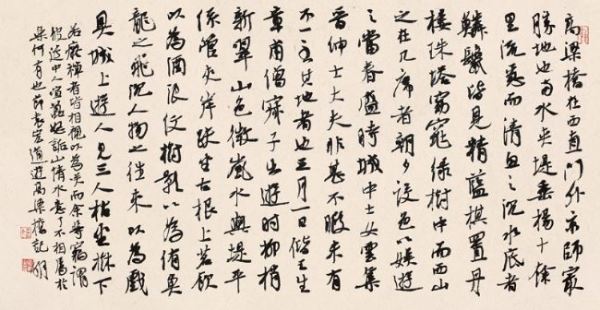 高梁橋在西直门外京師最
勝地也兩水夾堤垂楊十余
里流急而清魚之沉水底者
鱗鬣皆見精藍棋置丹
樓珠塔窈窕綠樹中而西山
之在几席者朝夕設色以娱遊
人當春盛時城中士女雲集
缙紳士大夫非甚不暇未有
不一至其地者也三月一日偕王生
章甫僧寂子出遊時柳梢
新翠山色微嵐水與堤平
絲管夾岸趺坐古根上茗飲
以為酒浪紋樹影以為侑魚
鳥之飛沉人物之往來以為戲
具堤上遊人見三人枯坐樹下
若癡禪者皆相視以為笑而余等竊謂
彼筵中人喧囂怒詬山情水意了不相屬於
樂何有也節袁宏道遊高梁橋記